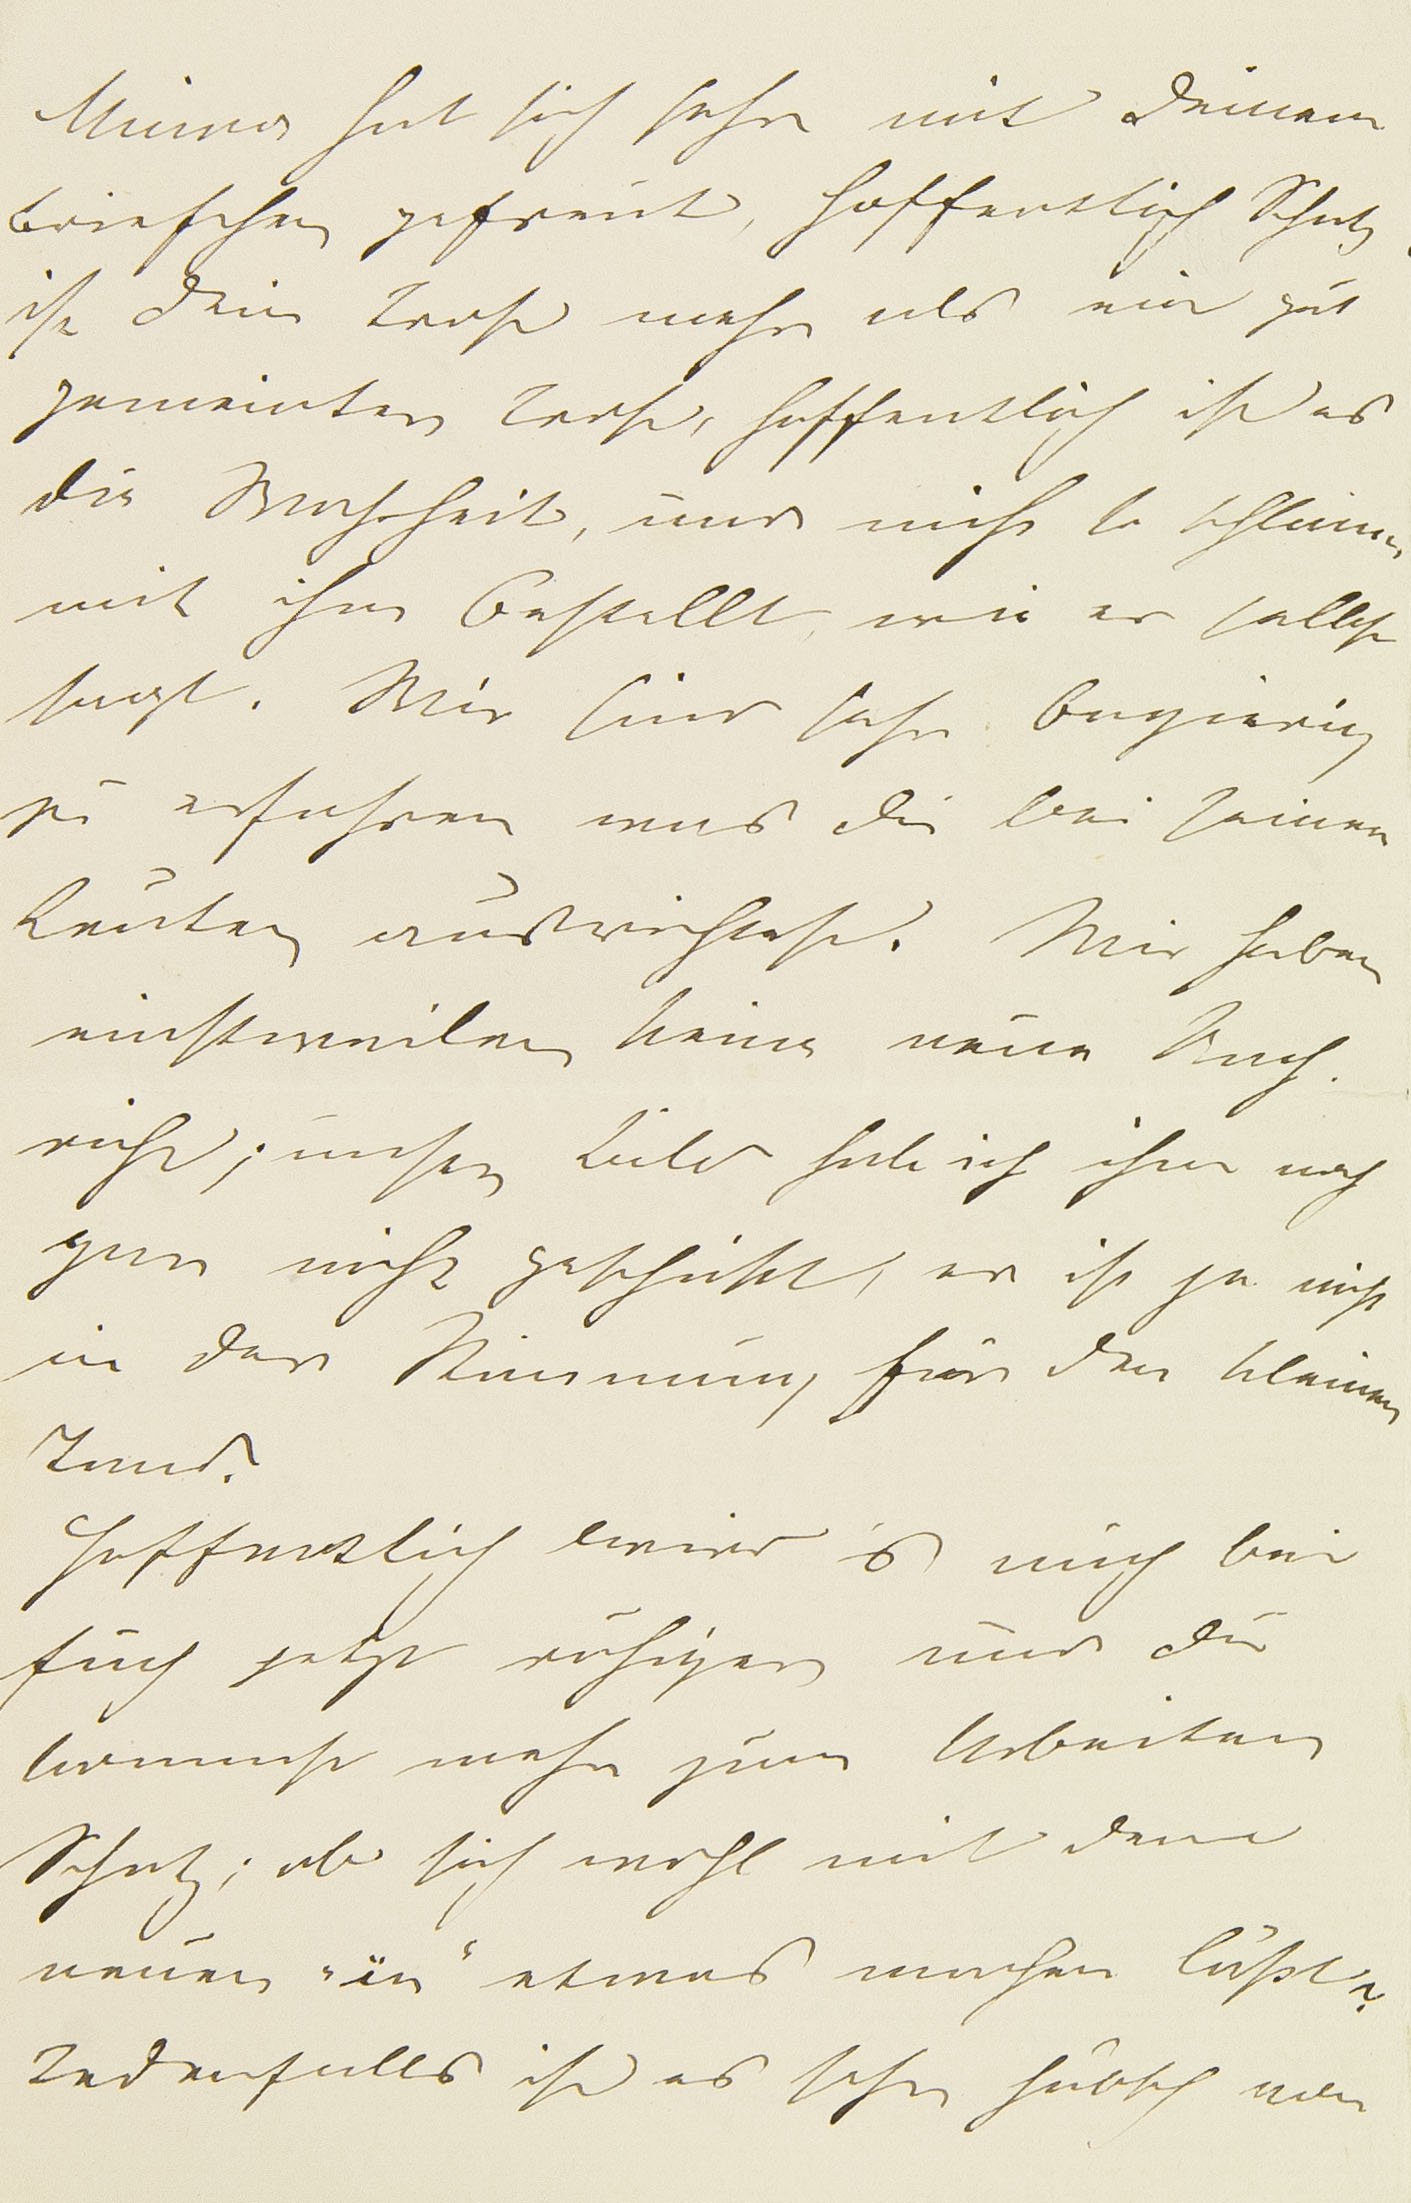 Minna hat sich sehr mit Deinem
Briefchen gefreut, hoffentlich Schatz
ist Dein Trost mehr als ein gut
gemeinter Trost, hoffentlich ist es
die Wahrheit, und nicht so schlimm
mit ihm bestellt wie er selbst
sagt. Wir sind sehr begierig
zu erfahren was du bei seinen
Leuten ausrichtest. Wir haben
einstweilen keine neue Nach.
richt; unser Bild hab ich ihm noch
gar nicht geschickt, er ist ja nicht
in der Stimmung für den kleinen
Tand.
Hoffentlich wird es auch bei
Euch jetzt ruhiger und du
kommst mehr zum Arbeiten
Schatz; ob sich wohl mit dem
neuen etwas machen läßt?
Jedenfalls ist es sehr hübsch von